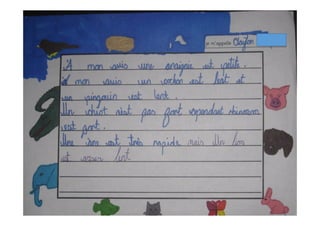 je m'appelle Clayton
A mon avis une araignée est petite.
A mon avis un cochon est lent et
un pingouin est lent.
Un chiot n'est pas fort cependant
est fort.
Une est très rapide mais Un lion
est assez lent.